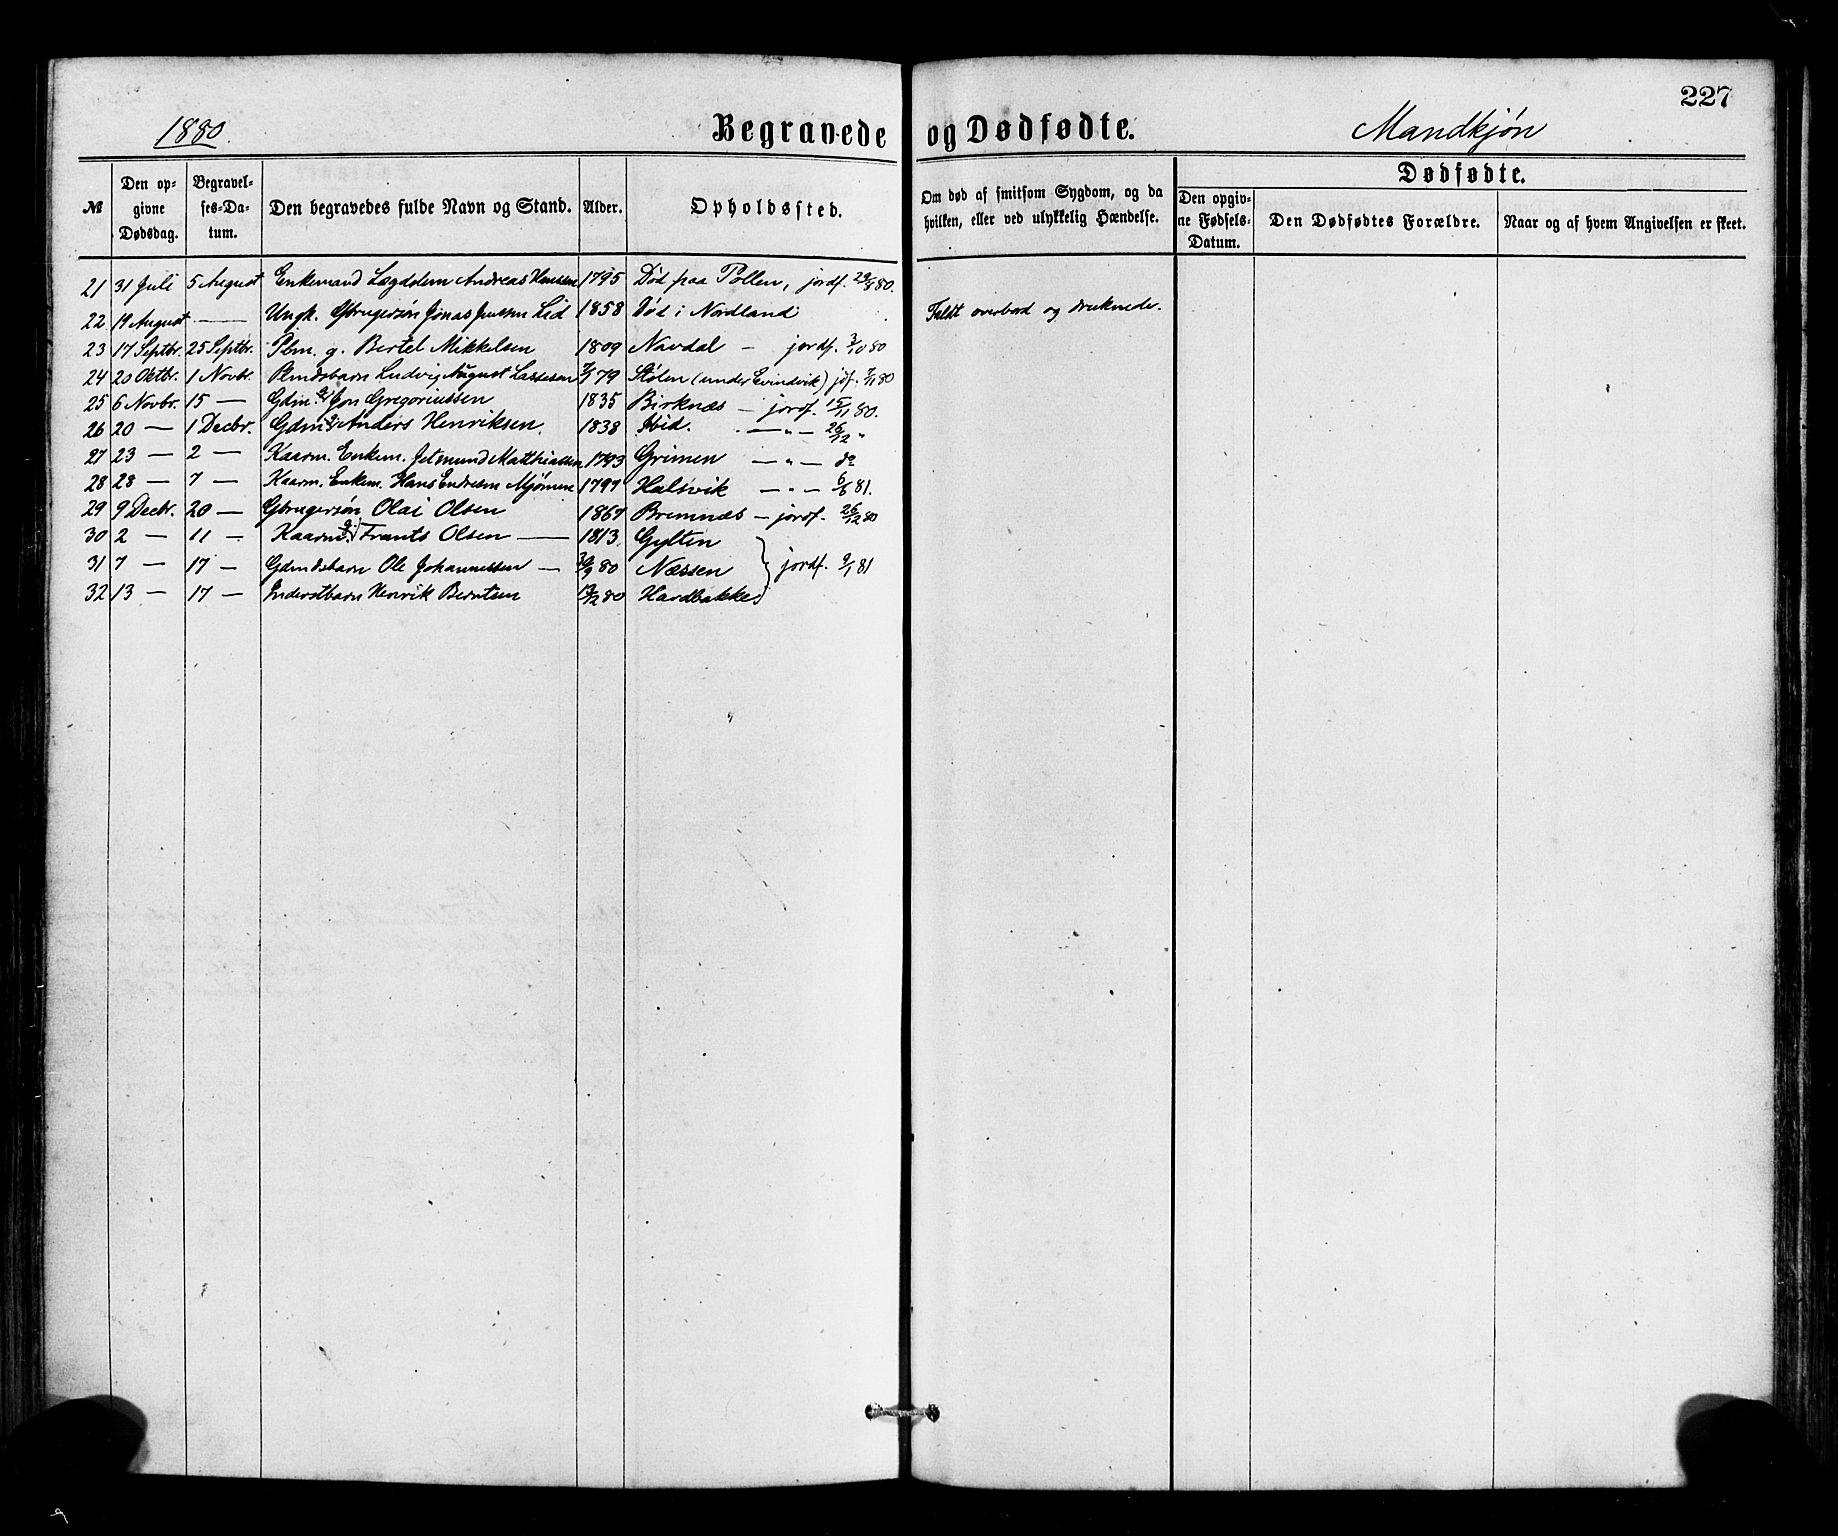 227
1880.
Begravede og Dødfødte.
Mandkjøn
№
Den opgivne Dødsdag.
Begravelses-Datum.
Den begravedes fulde Navn og Stand.
Alder.
Opholdssted.
Om død af smitsom Sygdom, og da hvilken, eller ved ulykkelig Hændelse.
Dødfødte.
Den opgivne Fødsels-Datum.
Den Dødfødtes Forældre.
Naar og af hvem Angivelsen er skeet.
21 31 Juli 5 August Enkemand Lægdslem Andreas Hansen 1795 Død paa Pollen, jordf. 29/8 80.
22 19 August — Ungk. Gbrugersøn Jonas Lid 1858 Død i Nordland Faldt overbord og druknede.
23 17 Septbr. 25 Septbr. Plm. g. Bertel Mikkelsen 1809 Navdal — jordf. 3/10 80
24 20 Oktbr. 1 Novbr. Plmdsbarn Ludvig August Lassesen 79 Stølen (under Evindvik) jdf. 7/11 80
25 6 Novbr. 15 — Gdm. g. Jon Gregoriussen 1835 Birknæs — jordf. 15/11 80.
26 20 — 1 Decbr. Gdm. g. Anders Henriksen. 1838 Ibid. — " — 26/12 "
27 23 — 2 — Kaarm. Enkem. Jetmund Matthiassen 1793 Grimen — " — do
28 28 — 7 — Kaarm. Enkem. Hans Endresen Mjømen 1797 Halsvik — " — 6/6 81.
29 9 Decbr. 20 — Gbrugersøn Olai Olsen 1867 Bremnæs — jordf. 26/12 80
30 2 — 11 — Kaarm. g. Frants Olsen — 1813. Gylten
31 7 — 17 — Gdmdsbarn Ole Johannessen — 30/9 80 Næssen } jordf. 9/1 81
32 13 — 17 — Inderstbarn Henrik Berntsen 12/12 80 Hardbakke